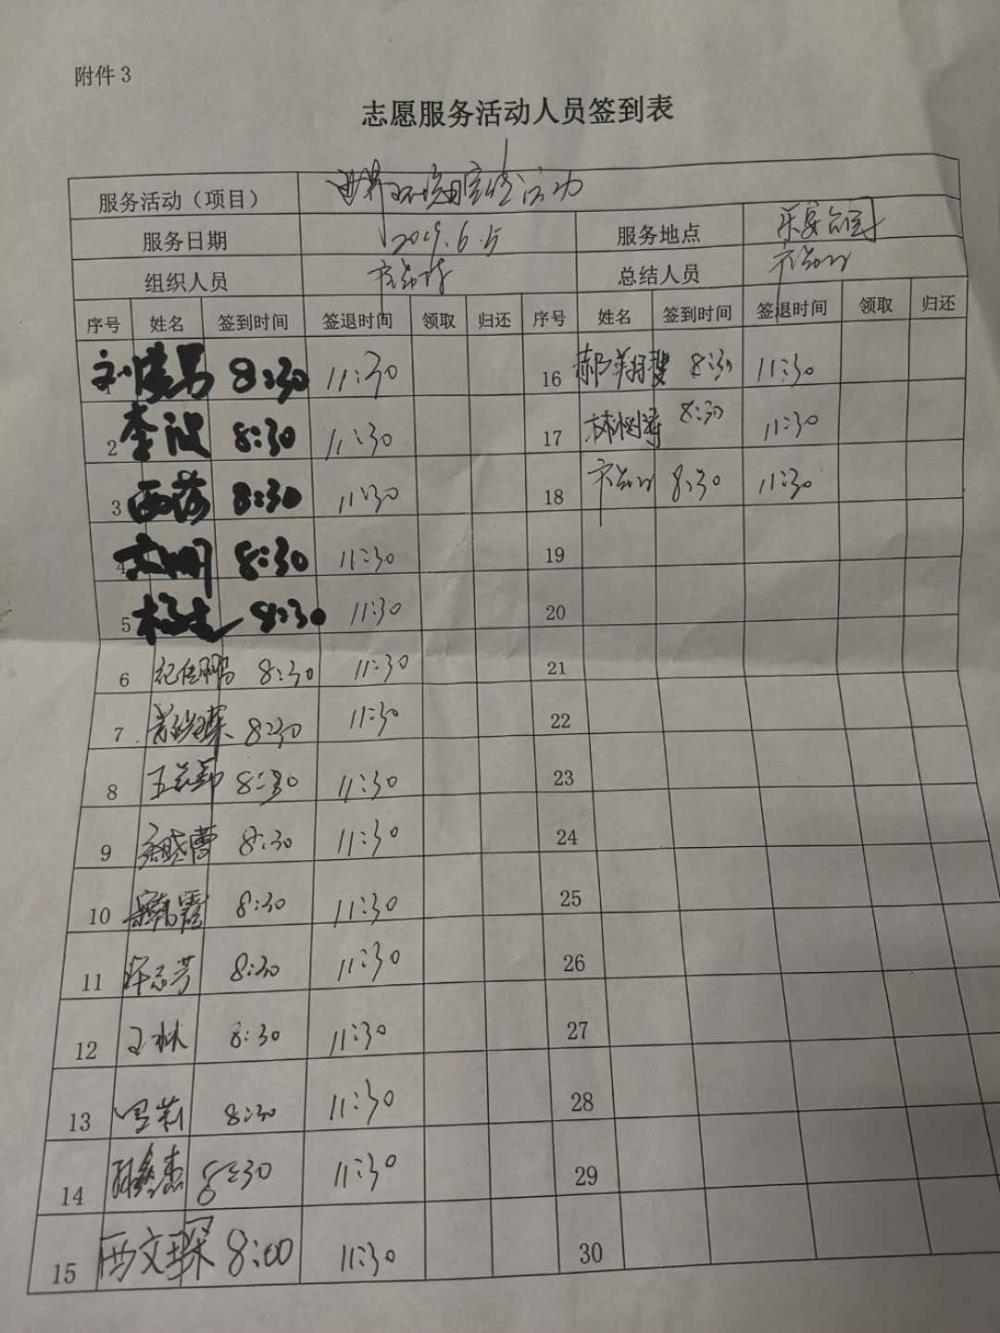 附件3
志愿服务活动人员签到表
服务活动（项目） 世界环境日宣传活动
服务日期 2019.6.5 服务地点 乐安公园
组织人员 总结人员
序号 姓名 签到时间 签退时间 领取 归还 序号 姓名 签到时间 签退时间 领取 归还
1 8:30 11:30 16 郝翔 8:30 11:30
2 李波 8:30 11:30 17 林树涛 8:30 11:30
3 西莎 8:30 11:30 18 8:30 11:30
4 8:30 11:30 19
5 8:30 11:30 20
6 纪任鹏 8:30 11:30 21
7 8:30 11:30 22
8 王 8:30 11:30 23
9 8:30 11:30 24
10 梁乾霞 8:30 11:30 25
11 许志芳 8:30 11:30 26
12 王林 8:30 11:30 27
13 罗莉 8:30 11:30 28
14 8:30 11:30 29
15 西文琛 8:00 11:30 30